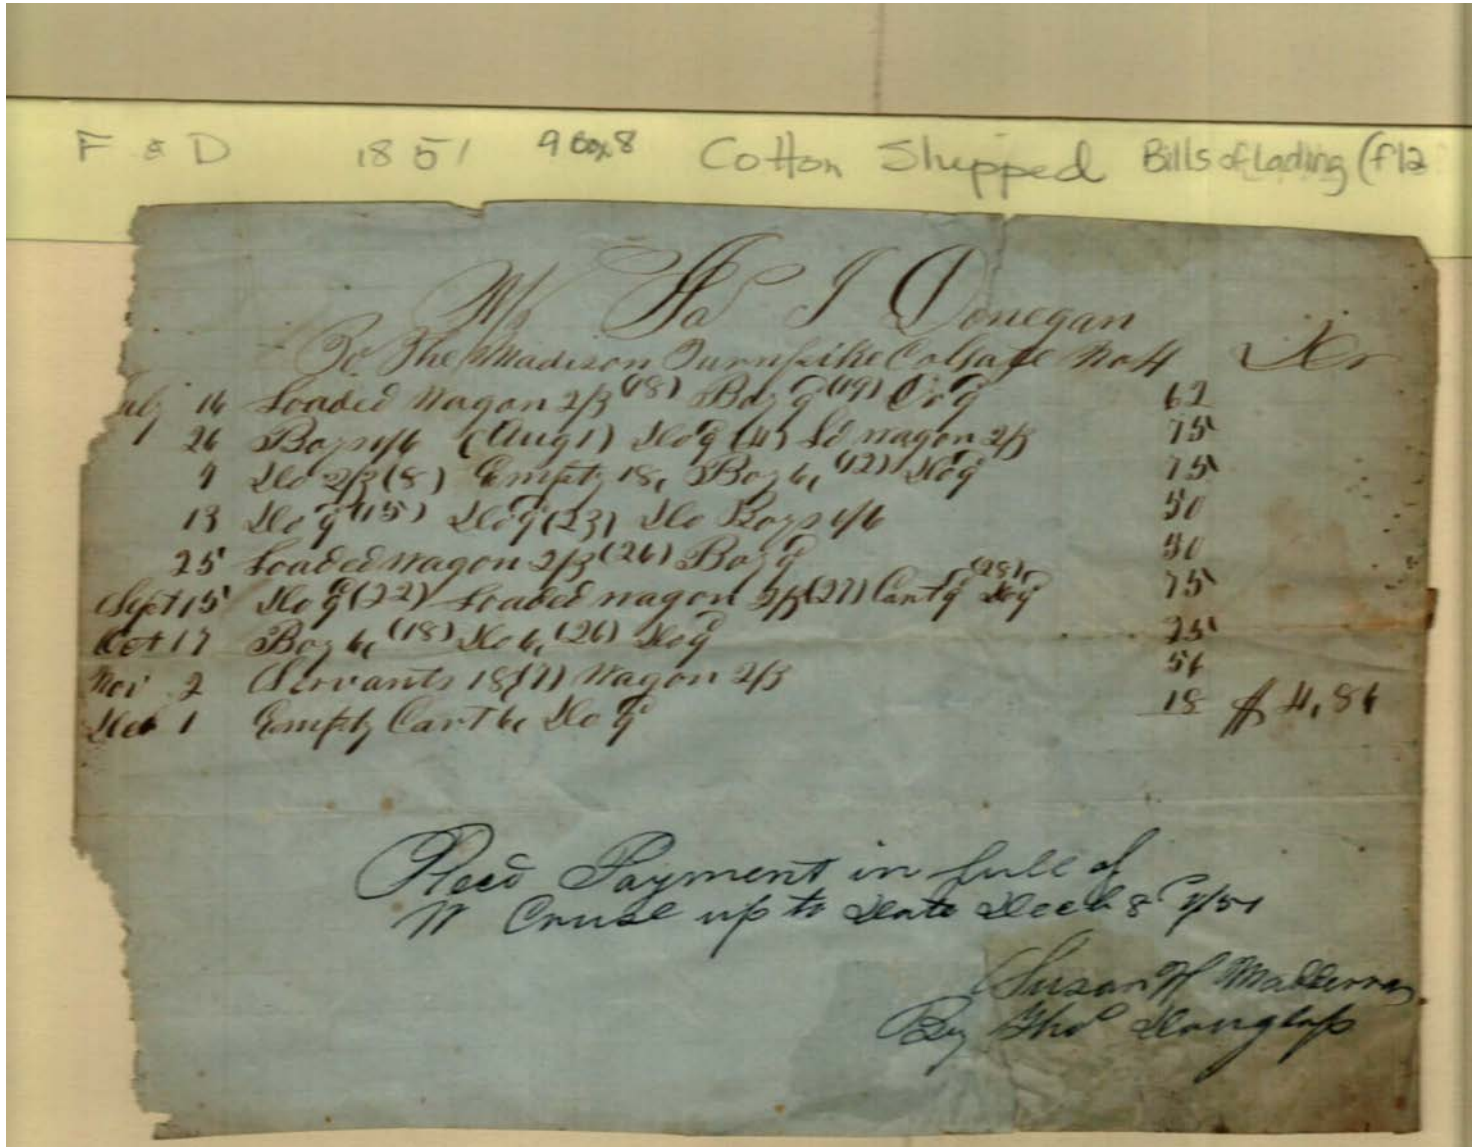 F & D 1851 9 Box 8 Cotton Shipped Bills of Lading (f12
Mr Ja J Donegan
To The Madison Turnpike Co Gate No 4 Dr
16 Loaded Wagon 2/3 (18) Boy 9d (19) 62
26 Boys 1/6 (Aug 1) Do 9d (4) Ld wagon 2/3 75
9 Do 2/3 (8) Empty 18, Boy 6, (12) Do 9d 75
13 Do 9d (15) Do 9d (23) Do Boys 1/6 50
25 Loaded Wagon 2/3 (26) Boy 9d 50
Sept 15 Do 9d (22) Loaded wagon 2/3 (27) Cart 9d (28) Do 9d 75
Oct 17 Boy 6, (18) Do 6, (26) Do 9d 25
Nov 2 Servants 18 (7) Wagon 2/3 56
Dec 1 Empty Cart 6, Do 9d 18 $ 4,86
Recd Payment in full of
W Cruse up to Date Dec 8th /51
Susan H
By Thos Douglass